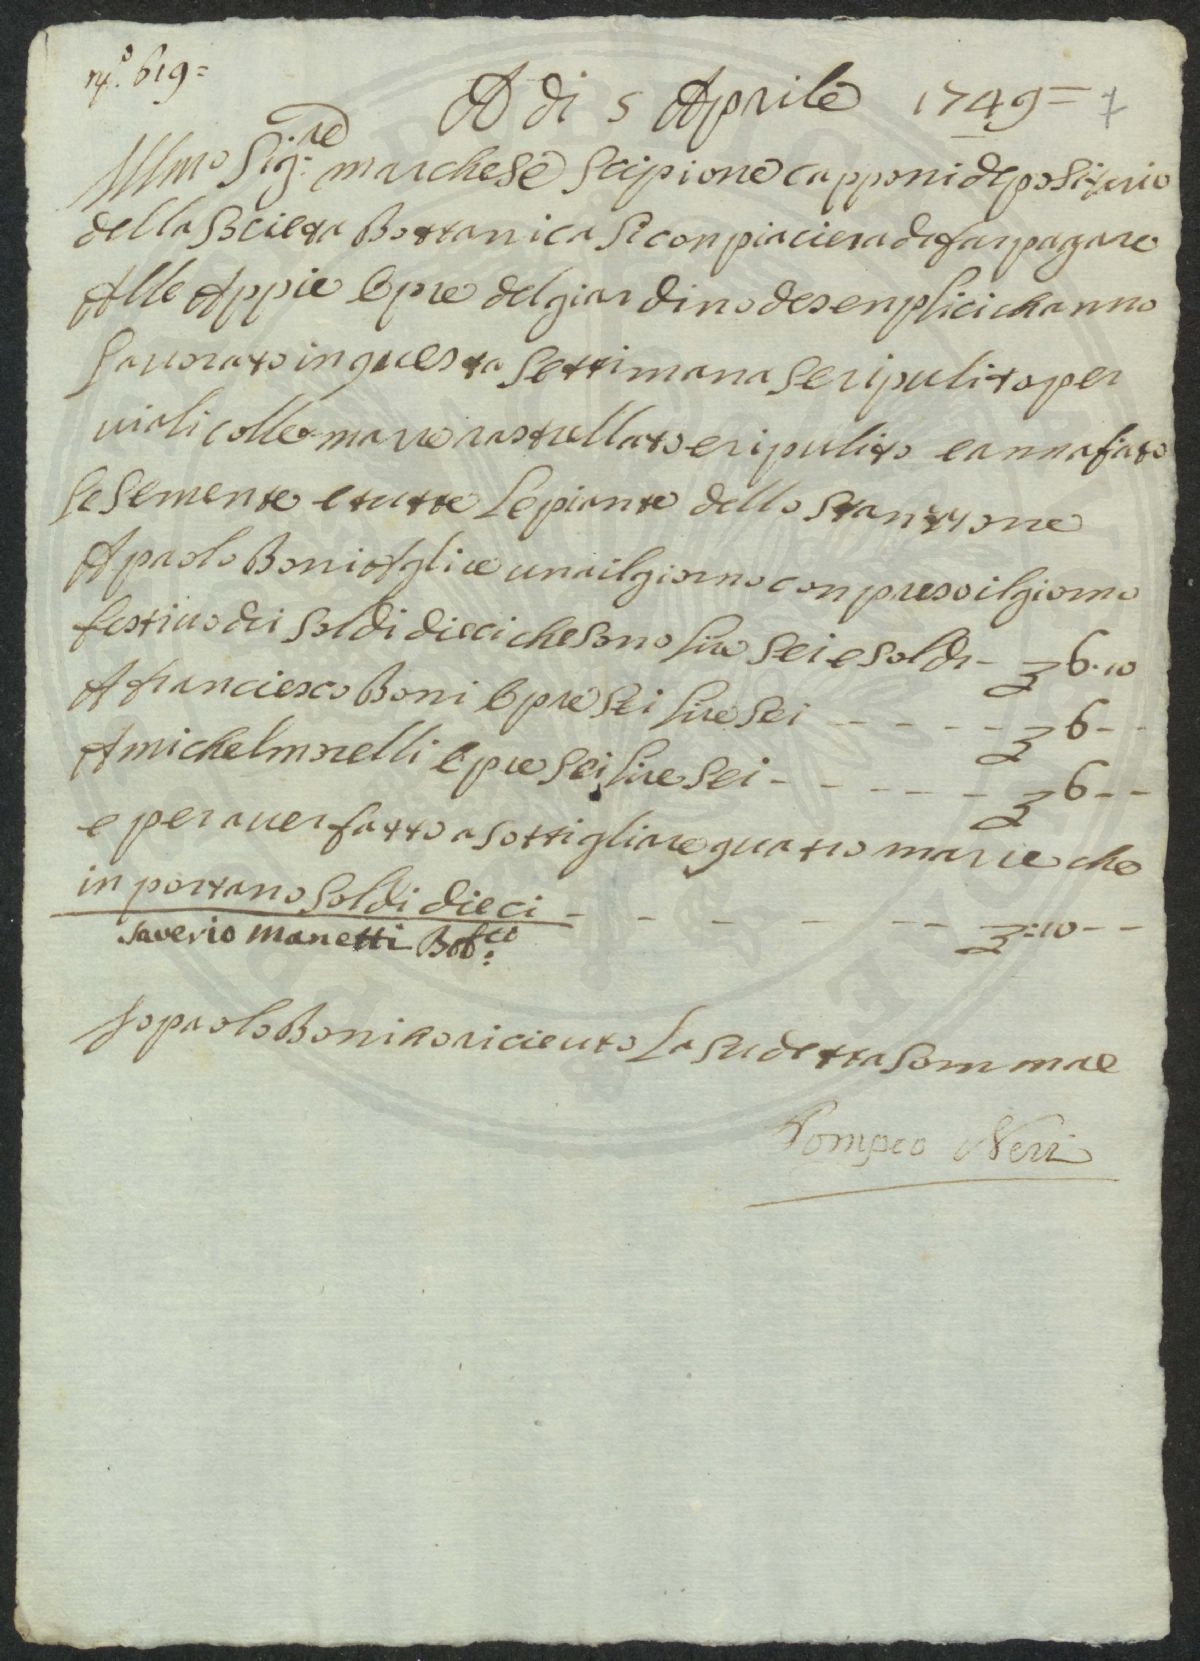 Nº. 619=
A di 5 Aprile 1749=
Illmo Sig:re marchese Scipione Capponi depositario
della Societa Bottanica Si conpiaciera di far pagare
Alle Appie Opre del giardino de senplici channo
Lauorato in questa Settimana se ripulito per
uiali colle marre rastrellato e ripulito e annafiato
le semente e tutte Le piante dello stanzzone
A paolo Boni A lire una il giorno conpreso il giorno
festiuo di soldi dieci che sono lire sei e soldi - 6.10
A franciesco Boni Opre sei lire sei - - - - - 6 - -
A michel morelli Opre sei lire sei - - - - - 6 - -
e per auer fatto asottigliare quatro marre che
inportano soldi dieci - - - - - - :10 - -
Saverio Manetti Bot.co
Io paolo Boni o riceuto La sudetta somma e
Pompeo Neri